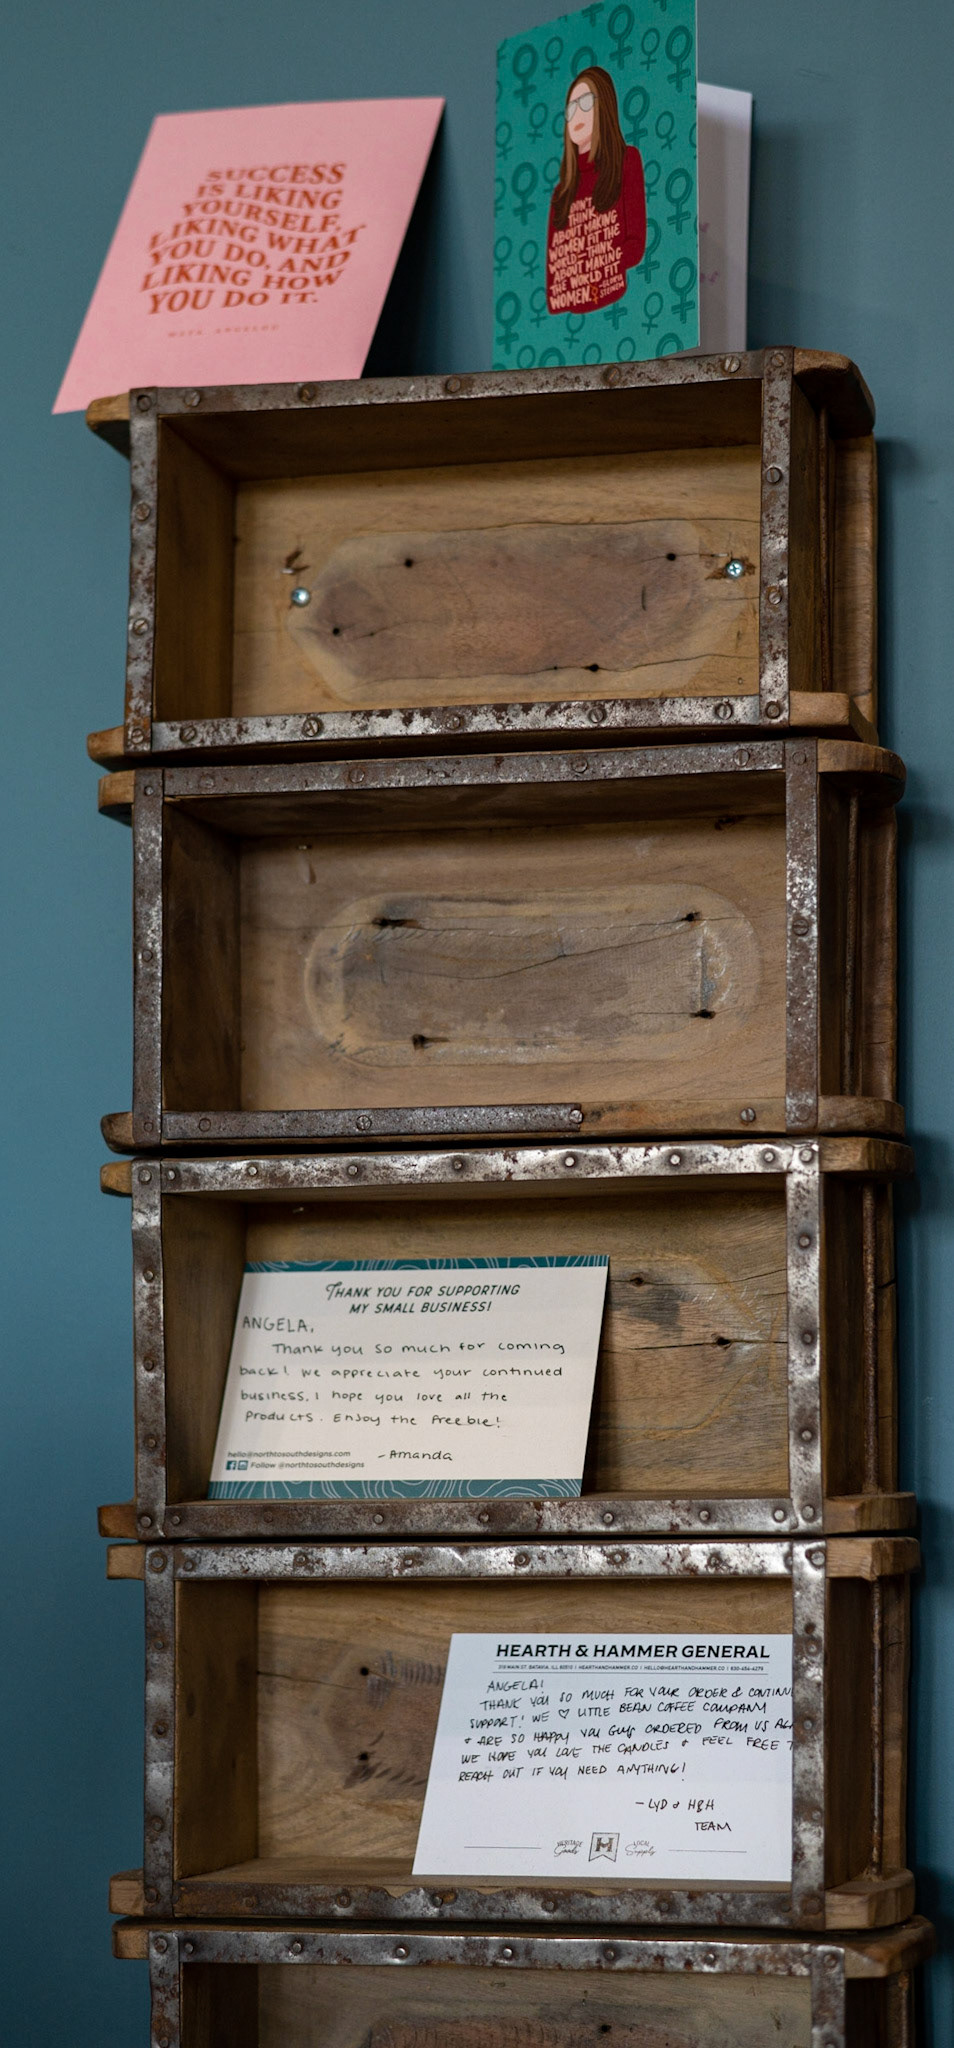 SUCCESS
IS LIKING
YOURSELF,
LIKING WHAT
YOU DO, AND
LIKING HOW
YOU DO IT.
MAYA ANGELOU
DON'T
THINK
ABOUT MAKING
WOMEN FIT THE
WORLD—THINK
ABOUT MAKING
THE WORLD FIT
WOMEN.
-GLORIA
STEINEM
THANK YOU FOR SUPPORTING
MY SMALL BUSINESS!
ANGELA,
Thank you so much for coming
back! We appreciate your continued
business. I hope you love all the
products. Enjoy the freebie!
-Amanda
hello@northtosouthdesigns.com
Follow @northtosouthdesigns
HEARTH & HAMMER GENERAL
BATAVIA, ILL 60510 | HEARTHANDHAMMER.CO | HELLO@HEARTHANDHAMMER.CO |
ANGELA!
THANK YOU SO MUCH FOR YOUR ORDER & CONTINU
SUPPORT! WE ♡ LITTLE BEAN COFFEE COMPANY
& ARE SO HAPPY YOU GUYS ORDERED FROM US
WE HOPE YOU LOVE THE CANDLES & FEEL FREE T
REACH OUT IF YOU NEED ANYTHING!
-LYD & H&H
TEAM
HERITAGE Goods H LOCAL Supply